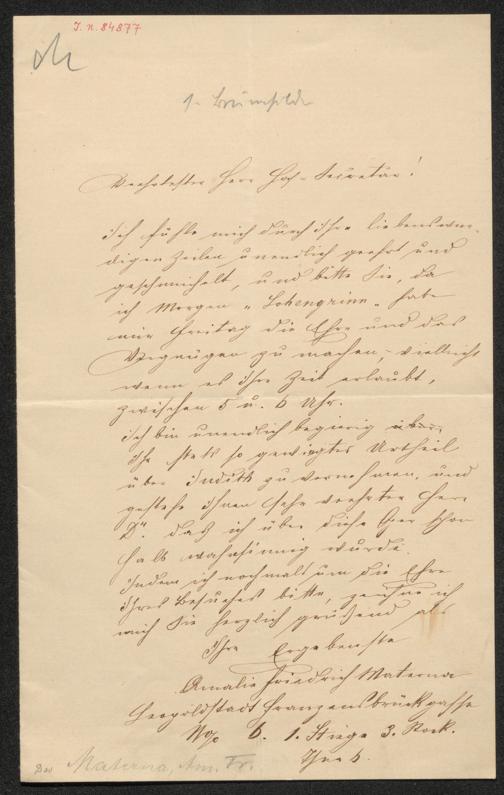 I. N. 84877
1. Brünnhilde
Verehrtester Herr Hof-Secretär!
Ich fühle mich durch Ihre liebenswür-
digen Zeilen unendlich geehrt und
geschmeichelt, und bitte Sie, da
ich Morgen "Lohengrinn" habe
mir Freitag die Ehre und das
Vergnügen zu machen, vielleicht
wenn es Ihre Zeit erlaubt,
zwischen 5 u. 6 Uhr.
Ich bin unendlich begierig über
Ihr stets so gewiegtes Urtheil
über Judith zu vernehmen, und
gestehe Ihnen sehr verehrter Herr
Dr. daß ich über diese Oper schon
halb wahnsinnig wurde.
Indem ich nochmals um die Ehre
Ihres Besuches bitte, zeichne ich
mich Sie herzlich grüßend als
Ihre Ergebenste
Amalie Friedrich Materna
Leopoldstadt Franzensbrückgasse
No 6. 1. Stiege 3. Stock.
Thür 6.
Materna, Am. Fr.